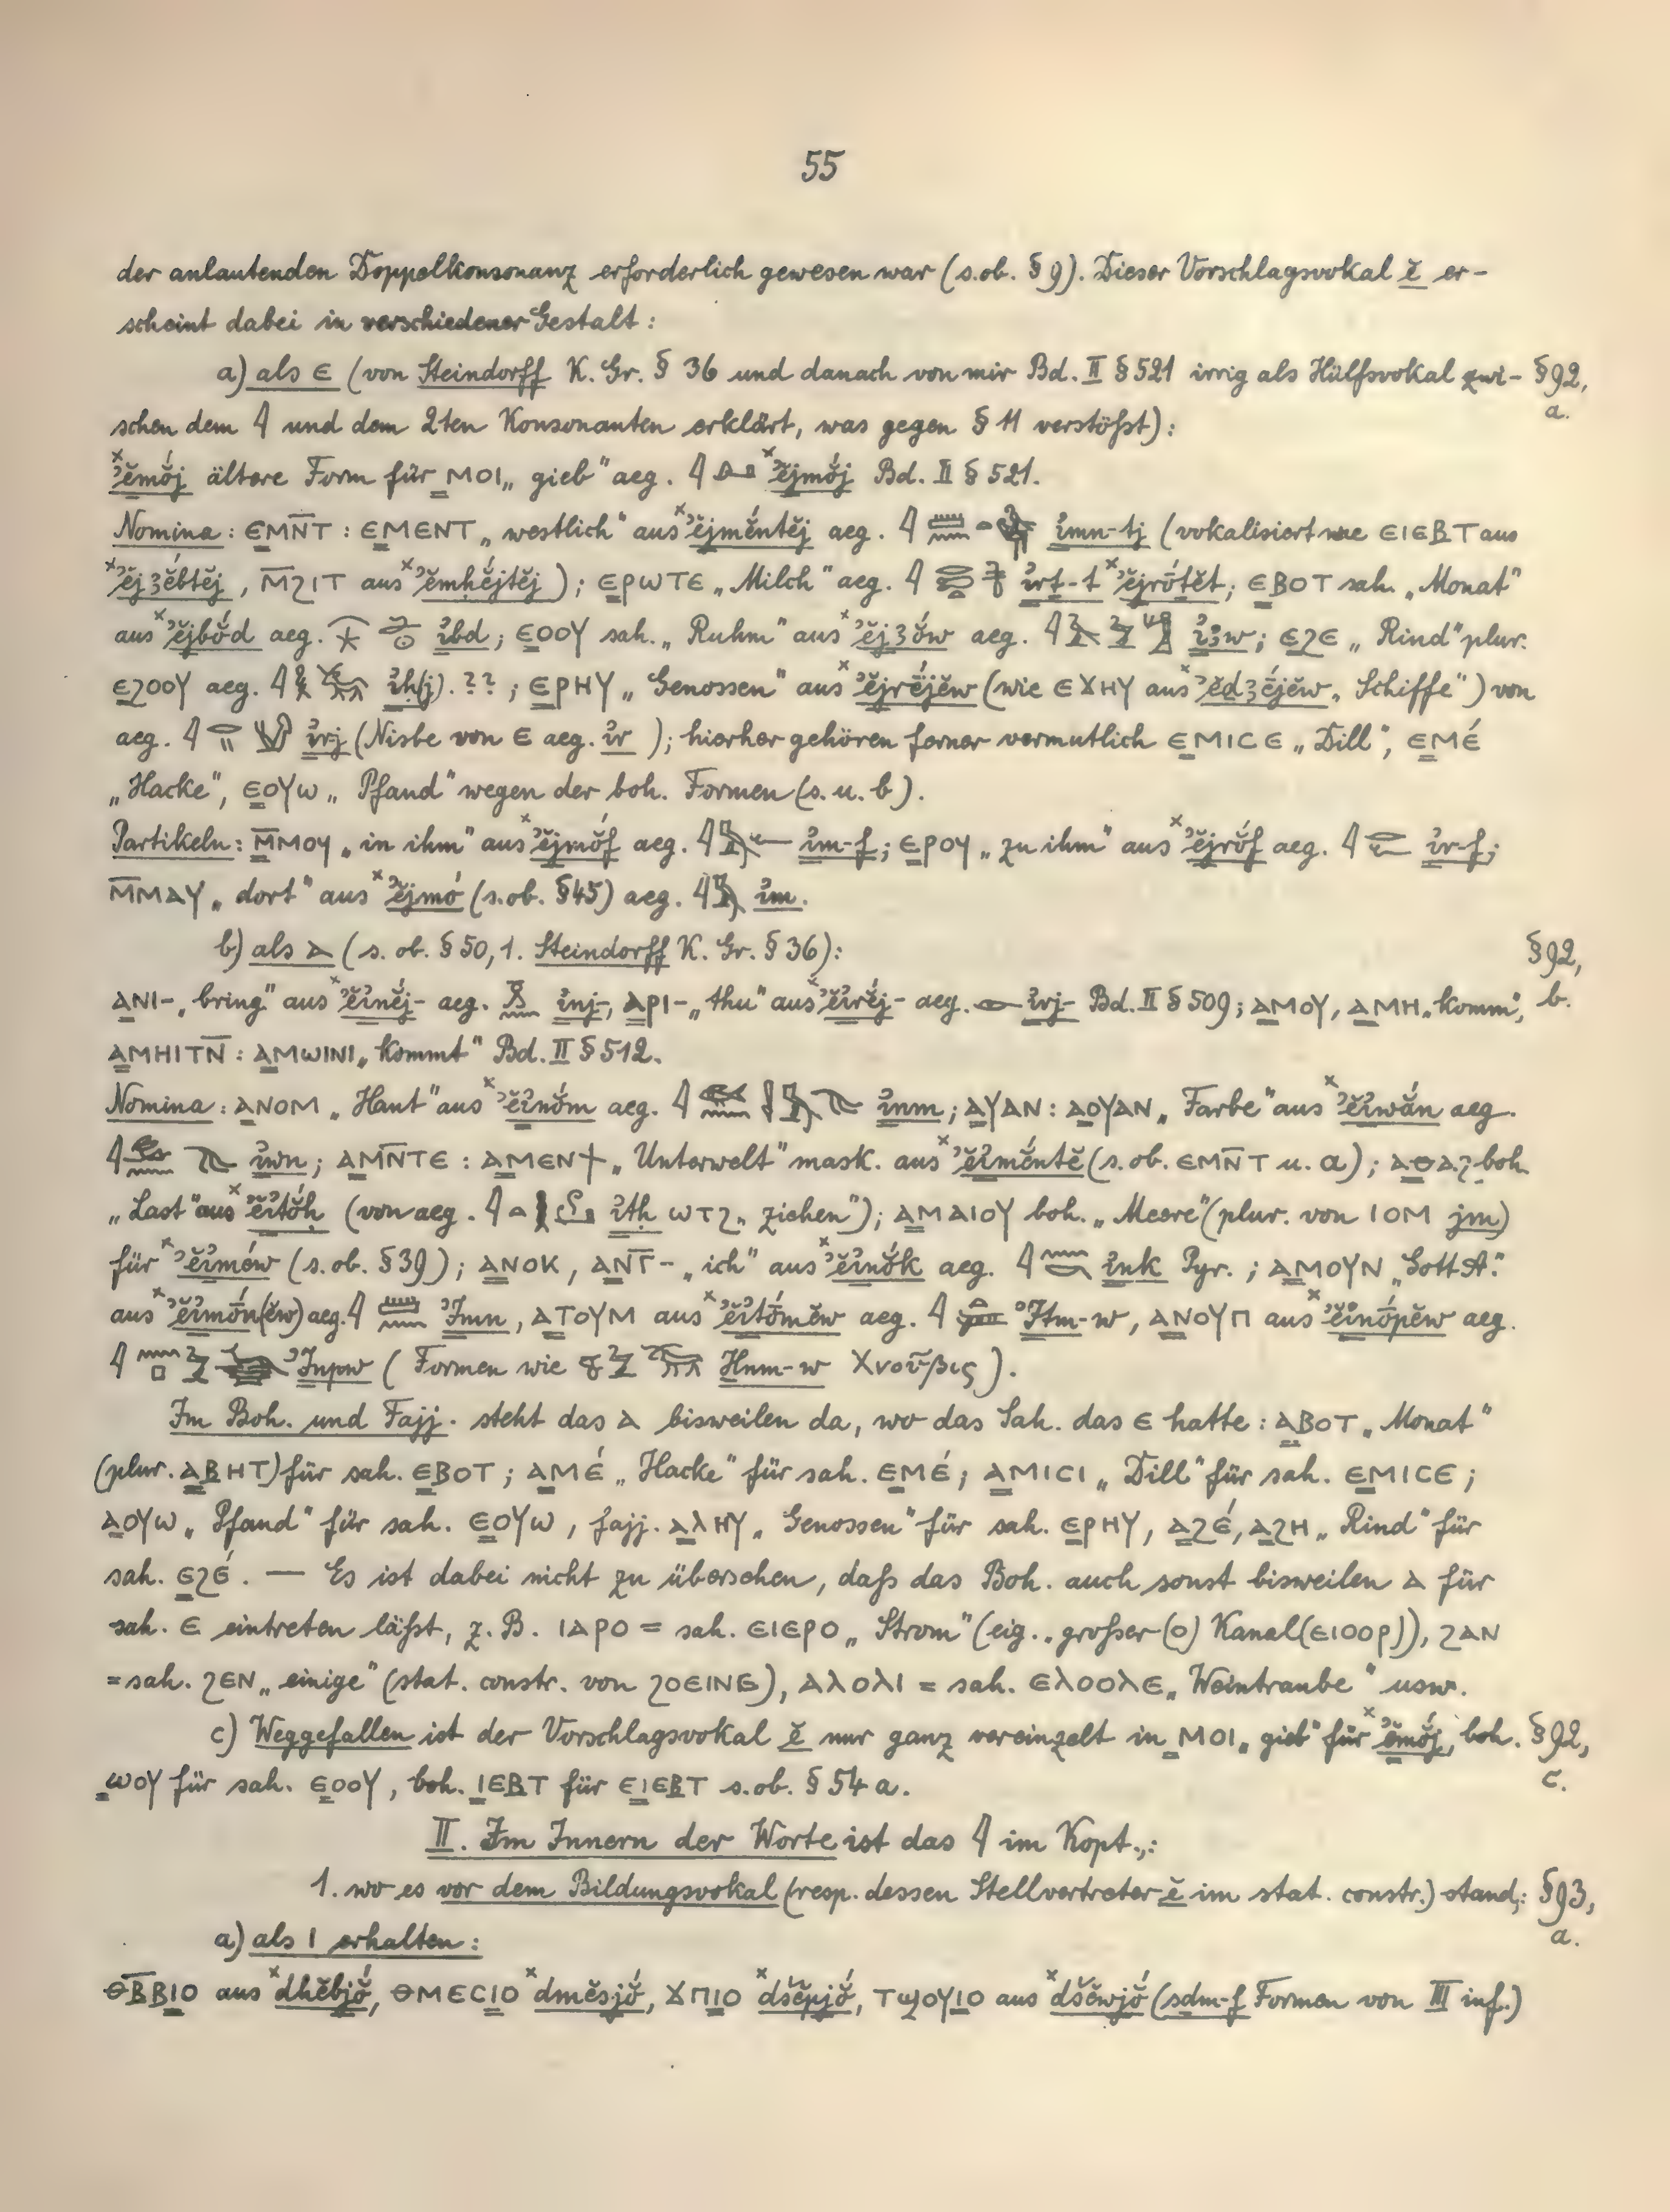 55
der anlautenden Doppelkonsonanz erforderlich gewesen war (s. ob. § 9). Dieser Vorschlagsvokal ĕ er-
scheint dabei in verschiedener Gestalt:
a) als ⲉ (von Steindorff K. Gr. § 36 und danach von mir Bd. II § 521 irrig als Hülfsvokal zwi- § 92, a.
schen dem 𓇋 und dem 2ten Konsonanten erklärt, was gegen § 11 verstößt):
×ʾĕmŏ́j ältere Form für ⲙⲟⲓ „gieb" aeg. 𓇋 ×ʾĕjmŏ́j Bd. II § 521.
Nomina: ⲉⲙⲛ̅ⲧ : ⲉⲙⲉⲛⲧ „westlich" aus ×ʾĕjmĕ́ntĕj aeg. 𓇋𓏠𓈖 ı͗mn-tj (vokalisiert wie ⲉⲓⲉⲃⲧ aus
×ʾĕjꜣĕ́btĕj, ⲙ̅ϩⲓⲧ aus ×ʾĕmḥḗjtĕj); ⲉⲣⲱⲧⲉ „Milch" aeg. 𓇋 ı͗rṯ-t ×ʾĕjrṓtĕt; ⲉⲃⲟⲧ sah. „Monat"
aus ×ʾĕjbŏ́d aeg. ı͗bd; ⲉⲟⲟⲩ sah. „Ruhm" aus ×ʾĕjꜣŏ́w aeg. 𓇋 ı͗ꜣw; ⲉϩⲉ „Rind" plur.
ⲉϩⲟⲟⲩ aeg. 𓇋 ı͗ḥ(j). ?? ; ⲉⲣⲏⲩ „Genossen" aus ×ʾĕjrḗjĕw (wie ⲉϫⲏⲩ aus ×ʾĕdꜣḗjĕw „Schiffe") von
aeg. 𓇋 ı͗rj (Nisbe von ⲉ aeg. ı͗r ); hierher gehören ferner vermutlich ⲉⲙⲓⲥⲉ „Dill", ⲉⲙⲉ́
„Hacke", ⲉⲟⲩⲱ „Pfand" wegen der boh. Formen (s. u. b).
Partikeln: ⲙ̅ⲙⲟϥ „in ihm" aus ×ʾĕjmŏ́f aeg. 𓇋𓅓𓆑 ı͗m-f; ⲉⲣⲟϥ „zu ihm" aus ×ʾĕjrŏ́f aeg. 𓇋𓂋𓆑 ı͗r-f;
ⲙ̅ⲙⲁⲩ „dort" aus ×ʾĕjmó (s. ob. § 45) aeg. 𓇋𓅓 ı͗m.
b) als ⲁ (s. ob. § 50, 1. Steindorff K. Gr. § 36): § 92,
ⲁⲛⲓ- „bring" aus ×ʾĕı͗nĕ́j- aeg. 𓏎𓈖 ı͗nj-, ⲁⲣⲓ- „thu" aus ×ʾĕı͗rĕ́j- aeg. 𓁹 ı͗rj- Bd. II § 509; ⲁⲙⲟⲩ, ⲁⲙⲏ „komm", b.
ⲁⲙⲏⲓⲧⲛ̅ : ⲁⲙⲱⲓⲛⲓ „kommt" Bd. II § 512.
Nomina: ⲁⲛⲟⲙ „Haut" aus ×ʾĕı͗nŏ́m aeg. 𓇋 ı͗nm; ⲁⲩⲁⲛ : ⲁⲟⲩⲁⲛ „Farbe" aus ×ʾĕı͗wắn aeg.
𓇋 ı͗wn; ⲁⲙⲛ̅ⲧⲉ : ⲁⲙⲉⲛϯ „Unterwelt" mask. aus ×ʾĕı͗mĕ́ntĕ (s. ob. ⲉⲙⲛ̅ⲧ u. a); ⲁⲑⲁϩ boh.
„Last" aus ×ʾĕı͗tŏ́ḥ (von aeg. 𓇋 ı͗tḥ ⲱⲧϩ „ziehen"); ⲁⲙⲁⲓⲟⲩ boh. „Meere" (plur. von ⲓⲟⲙ jm)
für ×ʾĕı͗mów (s. ob. § 39); ⲁⲛⲟⲕ, ⲁⲛⲧ̅- „ich" aus ×ʾĕı͗nŏ́k aeg. 𓇋𓈖𓎡 ı͗nk Pyr. ; ⲁⲙⲟⲩⲛ „Gott A."
aus ×ʾĕı͗mṓn(ĕw) aeg. 𓇋𓏠𓈖 ʾImn, ⲁⲧⲟⲩⲙ aus ×ʾĕı͗tṓmĕw aeg. 𓇋 ʾItm-w, ⲁⲛⲟⲩⲡ aus ×ʾĕı͗nṓpĕw aeg.
𓇋𓈖𓊪𓅱 ʾInpw ( Formen wie Ḫnm-w Χνοῦβις ).
Im Boh. und Fajj. steht das ⲁ bisweilen da, wo das Sah. das ⲉ hatte: ⲁⲃⲟⲧ „Monat"
(plur. ⲁⲃⲏⲧ) für sah. ⲉⲃⲟⲧ ; ⲁⲙⲉ́ „Hacke" für sah. ⲉⲙⲉ́ ; ⲁⲙⲓⲥⲓ „Dill" für sah. ⲉⲙⲓⲥⲉ ;
ⲁⲟⲩⲱ „Pfand" für sah. ⲉⲟⲩⲱ , fajj. ⲁⲗⲏⲩ „Genossen" für sah. ⲉⲣⲏⲩ, ⲁϩⲉ́, ⲁϩⲏ „Rind" für
sah. ⲉϩⲉ́ . — Es ist dabei nicht zu übersehen, daß das Boh. auch sonst bisweilen ⲁ für
sah. ⲉ eintreten läßt, z. B. ⲓⲁⲣⲟ = sah. ⲉⲓⲉⲣⲟ „Strom" (eig. „großer (ⲟ) Kanal (ⲉⲓⲟⲟⲣ)), ϩⲁⲛ
= sah. ϩⲉⲛ „einige" (stat. constr. von ϩⲟⲉⲓⲛⲉ), ⲁⲗⲟⲗⲓ = sah. ⲉⲗⲟⲟⲗⲉ „Weintraube" usw.
c) Weggefallen ist der Vorschlagsvokal ĕ nur ganz vereinzelt in ⲙⲟⲓ „gieb" für ×ʾĕmŏ́j, boh. § 92, c.
ⲱⲟⲩ für sah. ⲉⲟⲟⲩ, boh. ⲓⲉⲃⲧ für ⲉⲓⲉⲃⲧ s. ob. § 54 a.
II. Im Innern der Worte ist das 𓇋 im Kopt.,:
1. wo es vor dem Bildungsvokal (resp. dessen Stellvertreter ĕ im stat. constr.) stand,: § 93,
a) als ⲓ erhalten: a.
ⲑⲃ̅ⲃⲓⲟ aus ×dḥĕbjŏ́, ⲑⲙⲉⲥⲓⲟ ×dmĕsjŏ́, ϫⲡⲓⲟ ×dšĕpjŏ́, ⲧϣⲟⲩⲓⲟ aus ×dšĕwjŏ́ (sdm-f Formen von III inf.)